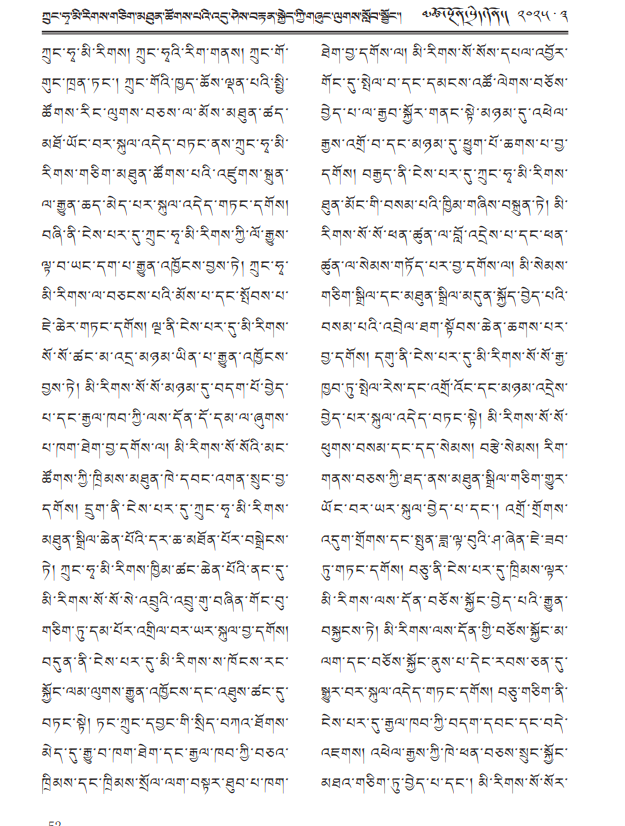 ཀྲུང་ཧྭ་མི་རིགས་གཅིག་མཐུན་ཚོགས་པའི་འདུ་ཤེས་བརྟན་སྐྱེད་ཀྱི་གཞུང་ལུགས་སློབ་སྦྱོང་།
༢༠༢༥ · ༣
ཀྲུང་ཧྭ་མི་རིགས། ཀྲུང་ཧྭའི་རིག་གནས། ཀྲུང་གོ་
གུང་ཁྲན་ཏང་། ཀྲུང་གོའི་ཁྱད་ཆོས་ལྡན་པའི་སྤྱི་
ཚོགས་རིང་ལུགས་བཅས་ལ་མོས་མཐུན་ཚད་
མཐོ་ཡོང་བར་སྐུལ་འདེད་བཏང་ནས་ཀྲུང་ཧྭ་མི་
རིགས་གཅིག་མཐུན་ཚོགས་པའི་འཛུགས་སྐྲུན་
ལ་རྒྱུན་ཆད་མེད་པར་སྐུལ་འདེད་གཏང་དགོས།
བཞི་ནི་ངེས་པར་དུ་ཀྲུང་ཧྭ་མི་རིགས་ཀྱི་ལོ་རྒྱུས་
ལྟ་བ་ཡང་དག་པ་རྒྱུན་འཁྱོངས་བྱས་ཏེ། ཀྲུང་ཧྭ་
མི་རིགས་ལ་བཅངས་པའི་མོས་པ་དང་སྤོབས་པ་
ཇེ་ཆེར་གཏང་དགོས། ལྔ་ནི་ངེས་པར་དུ་མི་རིགས་
སོ་སོ་ཚང་མ་འདྲ་མཉམ་ཡིན་པ་རྒྱུན་འཁྱོངས་
བྱས་ཏེ། མི་རིགས་སོ་སོ་མཉམ་དུ་བདག་པོ་བྱེད་
པ་དང་རྒྱལ་ཁབ་ཀྱི་ལས་དོན་དོ་དམ་ལ་ཞུགས་
པ་ཁག་ཐེག་བྱ་དགོས་ལ། མི་རིགས་སོ་སོའི་མང་
ཚོགས་ཀྱི་ཁྲིམས་མཐུན་ཁེ་དབང་འགན་སྲུང་བྱ་
དགོས། དྲུག་ནི་ངེས་པར་དུ་ཀྲུང་ཧྭ་མི་རིགས་
མཐུན་སྒྲིལ་ཆེན་པོའི་དར་ཆ་མཐོན་པོར་བསྒྲེངས་
ཏེ། ཀྲུང་ཧྭ་མི་རིགས་ཁྱིམ་ཚང་ཆེན་པོའི་ནང་དུ་
མི་རིགས་སོ་སོ་སེ་འབྲུའི་འབྲུ་གུ་བཞིན་གོང་བུ་
གཅིག་ཏུ་དམ་པོར་འགྲིལ་བར་ཡར་སྐུལ་བྱ་དགོས།
བདུན་ནི་ངེས་པར་དུ་མི་རིགས་ས་ཁོངས་རང་
སྐྱོང་ལམ་ལུགས་རྒྱུན་འཁྱོངས་དང་འཐུས་ཚང་དུ་
བཏང་སྟེ། ཏང་ཀྲུང་དབྱང་གི་སྲིད་བཀའ་ཐོགས་
མེད་དུ་རྒྱུ་བ་ཁག་ཐེག་དང་རྒྱལ་ཁབ་ཀྱི་བཅའ་
ཁྲིམས་དང་ཁྲིམས་སྲོལ་ལག་བསྟར་ཐུབ་པ་ཁག་
ཐེག་བྱ་དགོས་ལ། མི་རིགས་སོ་སོས་དཔལ་འབྱོར་
གོང་དུ་སྤེལ་བ་དང་དམངས་འཚོ་ལེགས་བཅོས་
བྱེད་པ་ལ་རྒྱབ་སྐྱོར་གནང་སྟེ་མཉམ་དུ་འཕེལ་
རྒྱས་འགྲོ་བ་དང་མཉམ་དུ་ཕྱུག་པོ་ཆགས་པ་བྱ་
དགོས། བརྒྱད་ནི་ངེས་པར་དུ་ཀྲུང་ཧྭ་མི་རིགས་
ཐུན་མོང་གི་བསམ་པའི་ཁྱིམ་གཞིས་བསྐྲུན་ཏེ། མི་
རིགས་སོ་སོ་ཕན་ཚུན་ལ་བློ་འདྲེས་པ་དང་ཕན་
ཚུན་ལ་སེམས་གཏོད་པར་བྱ་དགོས་ལ། མི་སེམས་
གཅིག་སྒྲིལ་དང་མཐུན་སྒྲིལ་མདུན་སྐྱོད་བྱེད་པའི་
བསམ་པའི་འབྲེལ་ཐག་སྟོབས་ཆེན་ཆགས་པར་
བྱ་དགོས། དགུ་ནི་ངེས་པར་དུ་མི་རིགས་སོ་སོ་རྒྱ་
ཁྱབ་ཏུ་སྤེལ་རེས་དང་འགྲོ་འོང་དང་མཉམ་འདྲེས་
བྱེད་པར་སྐུལ་འདེད་བཏང་སྟེ། མི་རིགས་སོ་སོ་
ཕུགས་བསམ་དང་དད་སེམས། བརྩེ་སེམས། རིག་
གནས་བཅས་ཀྱི་ཐད་ནས་མཐུན་སྒྲིལ་གཅིག་གྱུར་
ཡོང་བར་ཡར་སྐུལ་བྱེད་པ་དང་། འགྲོ་གྲོགས་
འདུག་གྲོགས་དང་སྤུན་ཟླ་ལྟ་བུའི་ཤ་ཞེན་ཇེ་ཟབ་
ཏུ་གཏང་དགོས། བཅུ་ནི་ངེས་པར་དུ་ཁྲིམས་ལྟར་
མི་རིགས་ལས་དོན་བཅོས་སྐྱོང་བྱེད་པའི་རྒྱུན་
བསྐྱངས་ཏེ། མི་རིགས་ལས་དོན་གྱི་བཅོས་སྐྱོང་མ་
ལག་དང་བཅོས་སྐྱོང་ནུས་པ་དེང་རབས་ཅན་དུ་
སྒྱུར་བར་སྐུལ་འདེད་གཏང་དགོས། བཅུ་གཅིག་ནི་
ངེས་པར་དུ་རྒྱལ་ཁབ་ཀྱི་བདག་དབང་དང་བདེ་
འཇགས། འཕེལ་རྒྱས་ཀྱི་ཁེ་ཕན་བཅས་སྲུང་སྐྱོང་
མཐའ་གཅིག་ཏུ་བྱེད་པ་དང་། མི་རིགས་སོ་སོར་